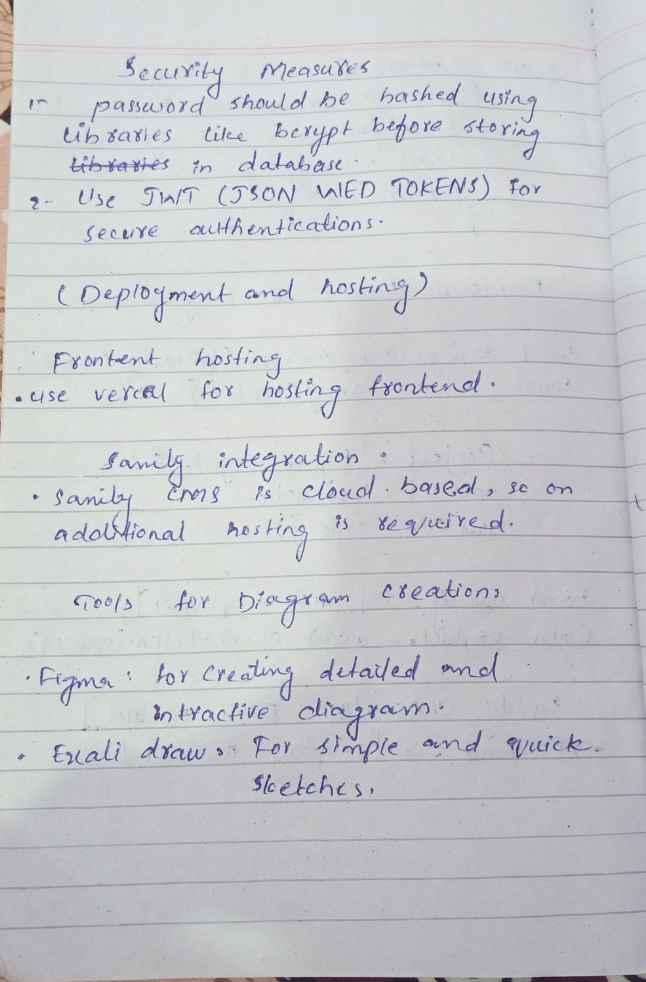 Security Measures
1- password should be hashed using
libraries like bcrypt before storing
libraries in database.
2- Use JWT (JSON WED TOKENS) for
secure authentications.
( Deployment and hosting )
Frontent hosting
• use vercel for hosting frontend.
Sanity integration :
• Sanity cms is cloud. based, so on
additional hosting is required.
Tools for Diagram creation:
• Figma : for creating detailed and
intractive diagram.
• Excali draw : For simple and quick.
sketches.